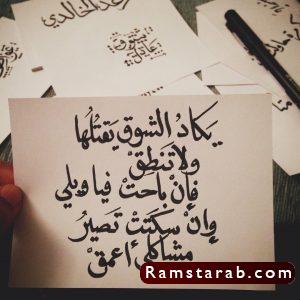 رعد الخالدي
يَكادُ الشوق يَقتُلُها
ولا تَنطِقْ
فإنْ باحتْ فيا ويلي
وإنْ سكَتَتْ تَصيرُ
مشاكلي أعمقْ
Ramstarab.com